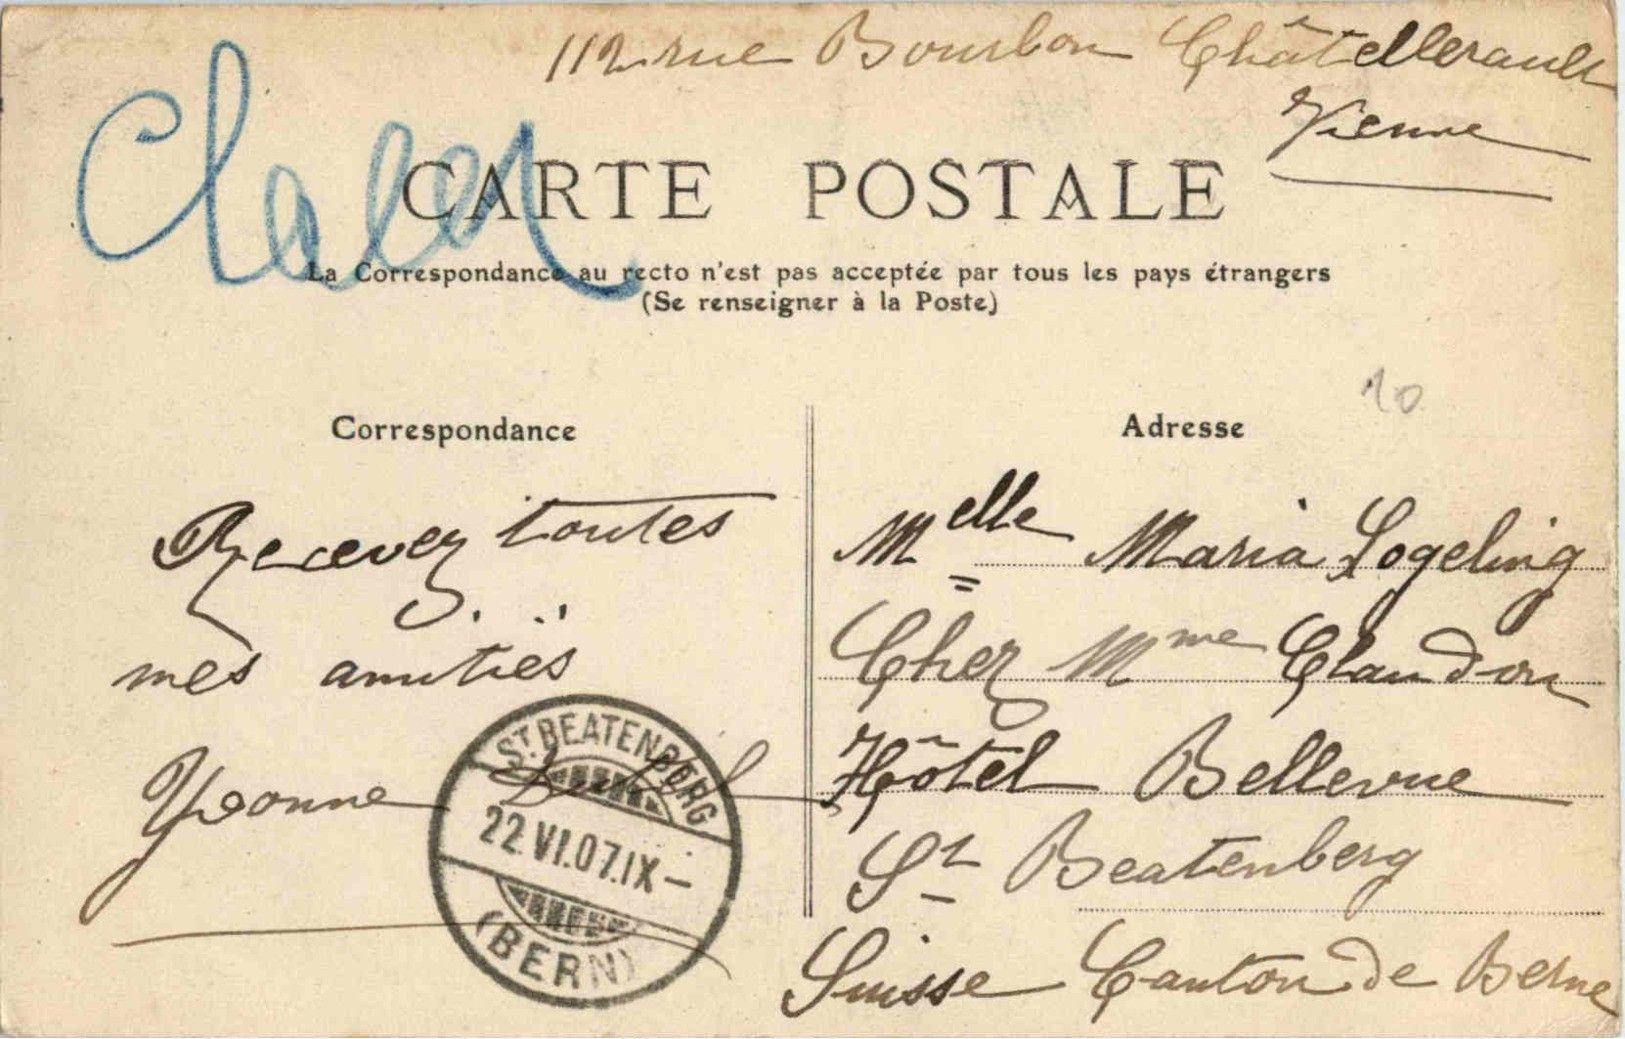 112 rue Bourbon Châtellerault
Vienne
CARTE POSTALE
La Correspondance au recto n'est pas acceptée par tous les pays étrangers
(Se renseigner à la Poste)
10
Correspondance
Recevez toutes
mes amitiés
Yvonne
ST. BEATENBERG
22.VI.07.IX–
(BERN)
Adresse
Melle Maria Logeling
Chez Mme Claudon
Hôtel Bellevue
St Beatenberg
Suisse Canton de Berne